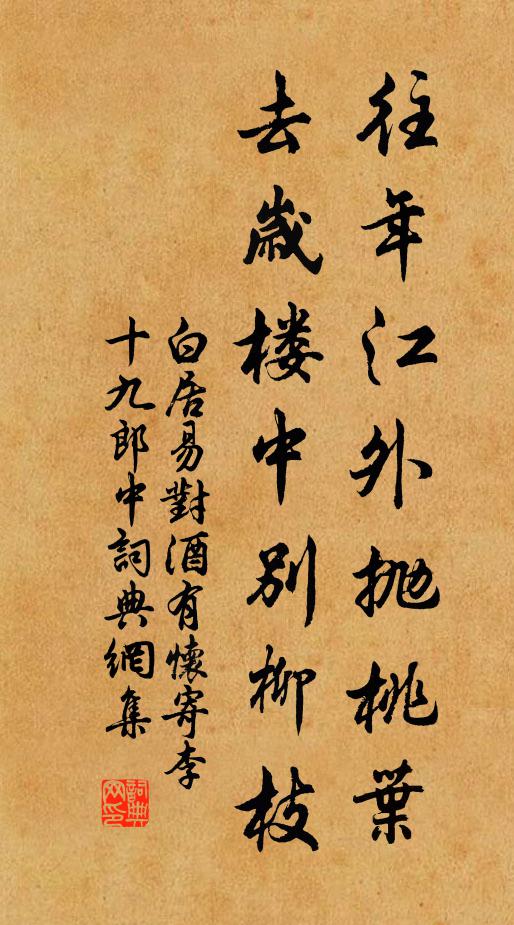 往年江外抛桃葉
去歲楼中别柳枝
白居易對酒有懷寄李
十九郎中詞典網集
詞典网印